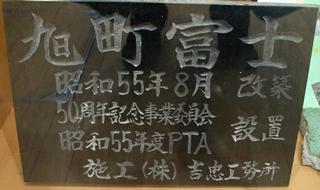 旭町富士
昭和55年8月 改築
50周年記念事業委員会
昭和55年度PTA 設置
施工(株)吉忠工務所